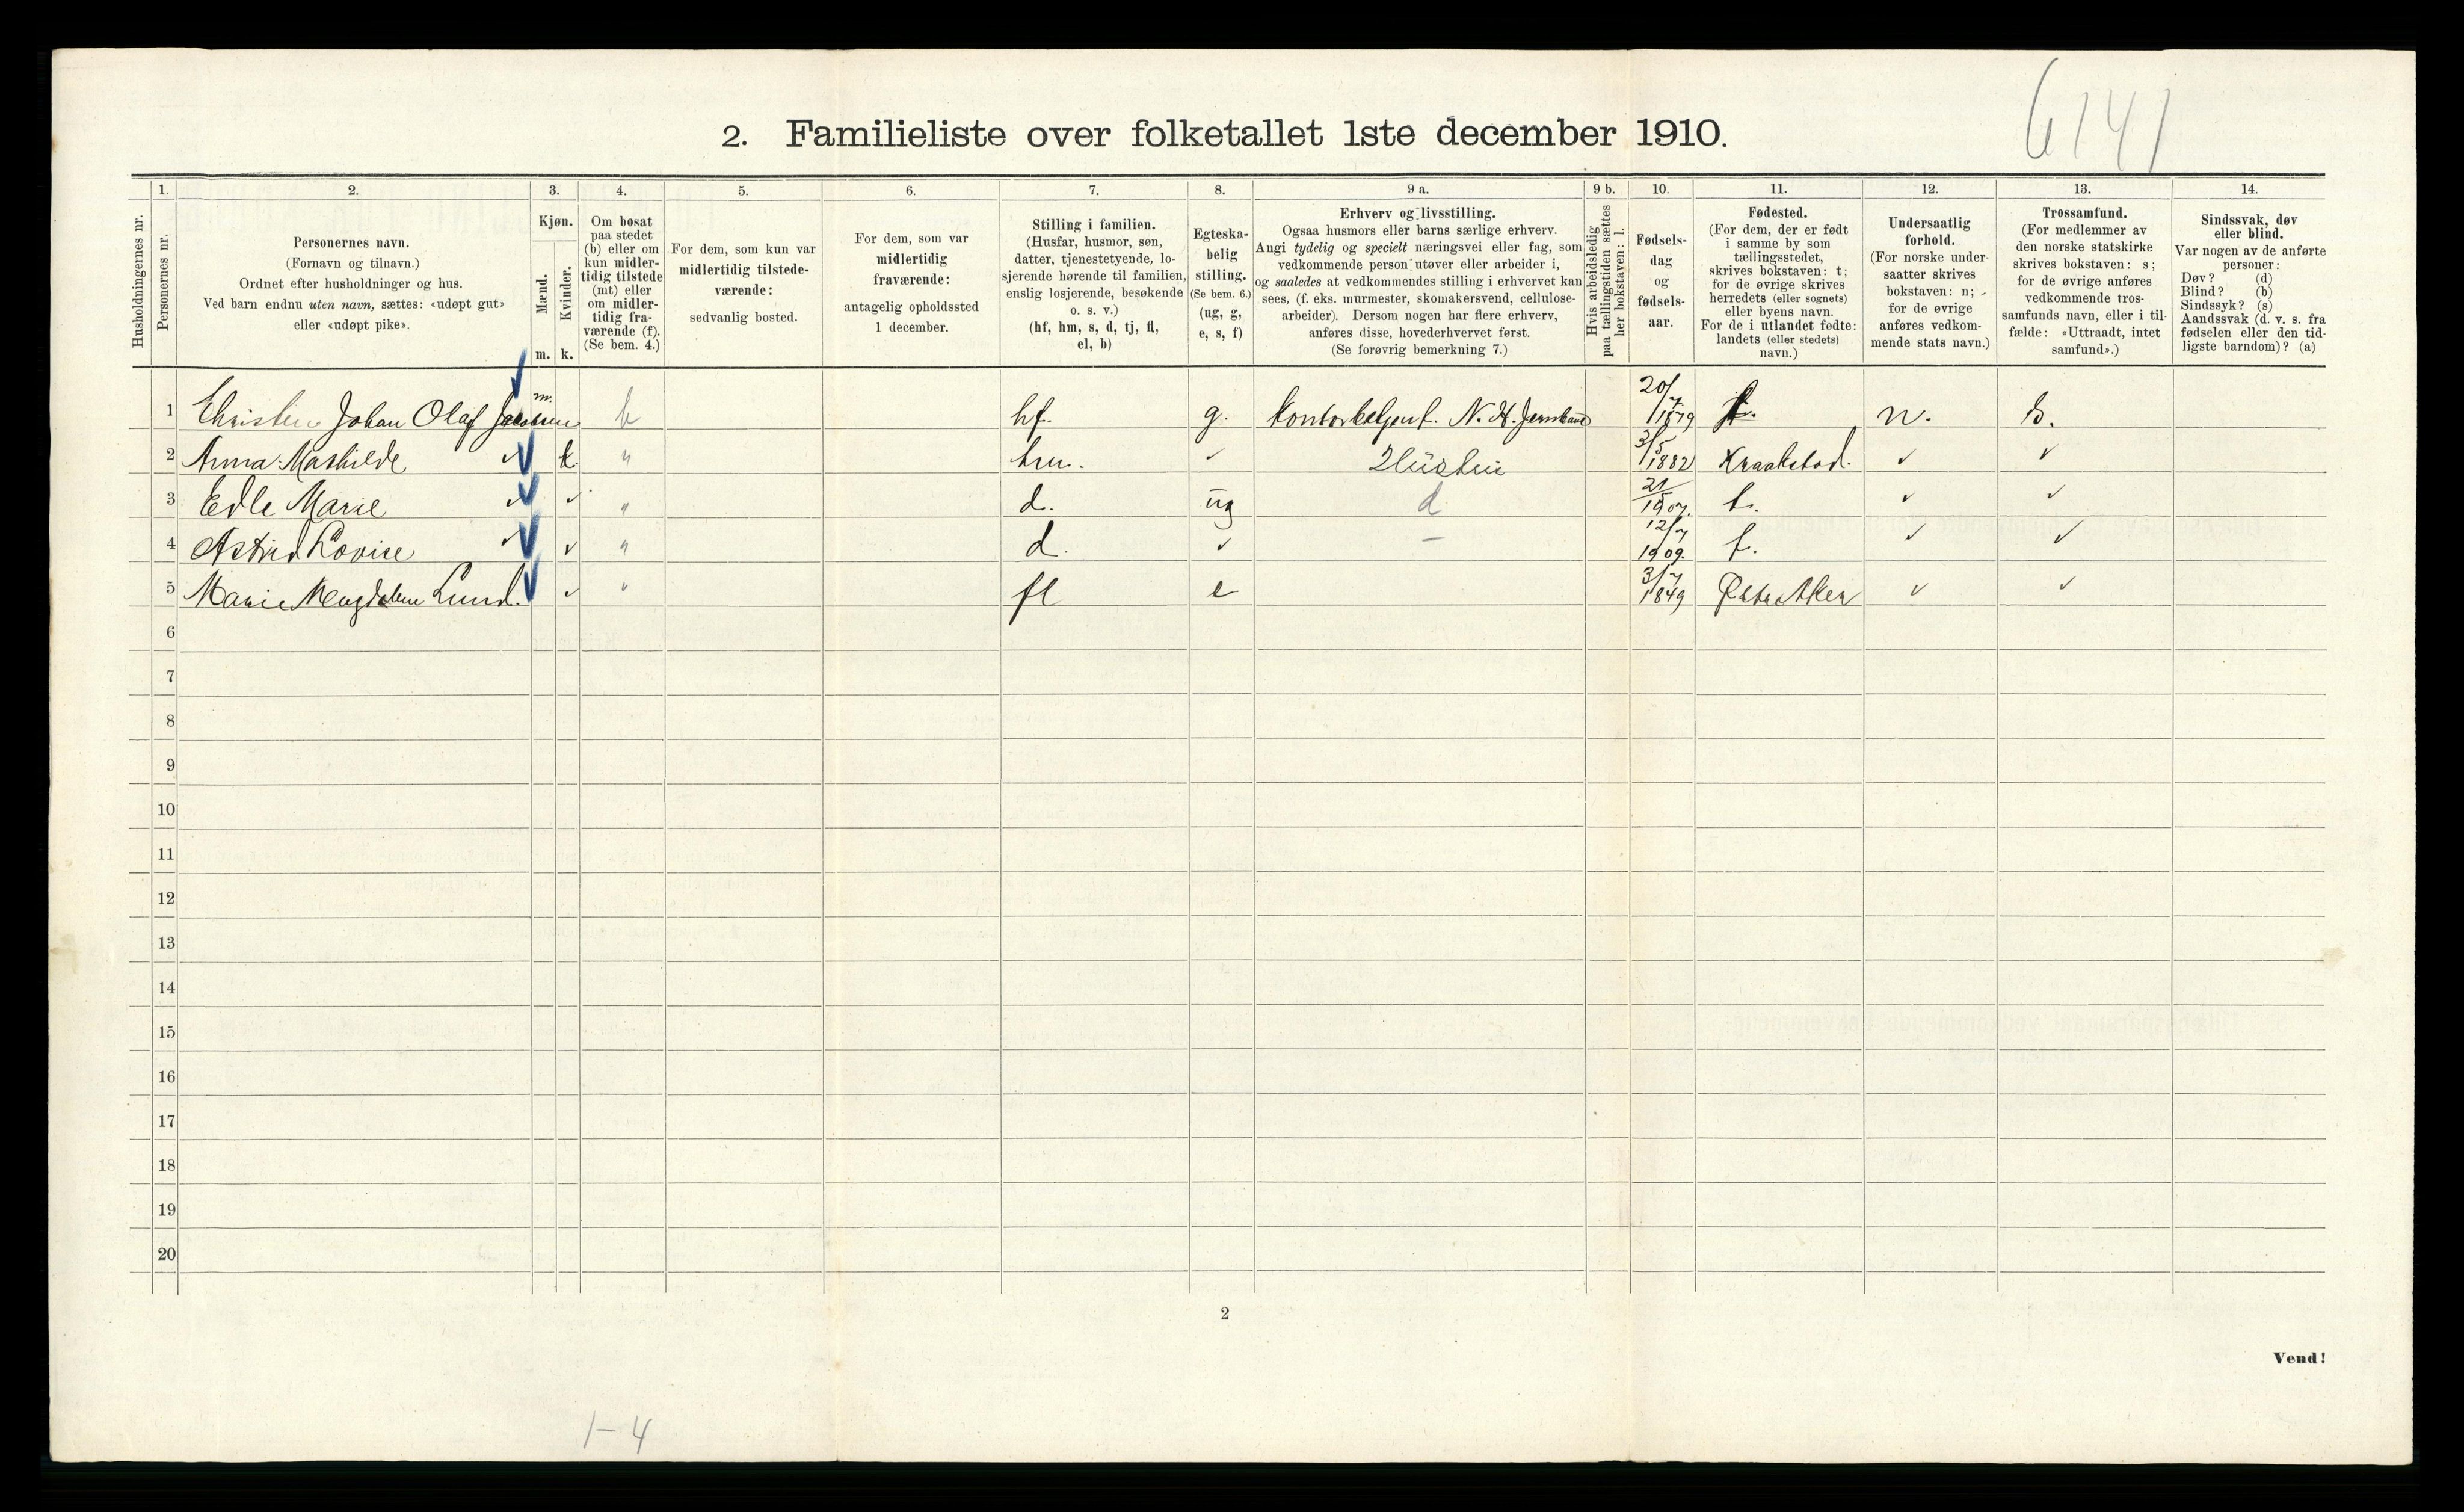 6141
2. Familieliste over folketallet 1ste december 1910.
Husholdningernes nr.
1.
Personernes nr.
2.
Personernes navn.
(Fornavn og tilnavn.)
Ordnet efter husholdninger og hus.
Ved barn endnu uten navn, sættes: «udøpt gut»
eller «udøpt pike».
3.
Kjøn.
Mænd.
Kvinder.
m. k.
4.
Om bosat
paa stedet
(b) eller om
kun midler-
tidig tilstede
(mt) eller
om midler-
tidig fra-
værende (f).
(Se bem. 4.)
5.
For dem, som kun var
midlertidig tilstede-
værende:
sedvanlig bosted.
6.
For dem, som var
midlertidig
fraværende:
antagelig opholdssted
1 december.
7.
Stilling i familien.
(Husfar, husmor, søn,
datter, tjenestetyende, lo-
sjerende hørende til familien,
enslig losjerende, besøkende
o. s. v.)
(hf, hm, s, d, tj, fl,
el, b)
8.
Egteska-
belig
stilling.
(Se bem. 6.)
(ug, g,
e, s, f)
9 a.
Erhverv og livsstilling.
Ogsaa husmors eller barns særlige erhverv.
Angi tydelig og specielt næringsvei eller fag, som
vedkommende person utøver eller arbeider i,
og saaledes at vedkommendes stilling i erhvervet kan
sees, (f. eks. murmester, skomakersvend, cellulose-
arbeider). Dersom nogen har flere erhverv,
anføres disse, hovederhvervet først.
(Se forøvrig bemerkning 7.)
9 b.
Hvis arbeidsledig
paa tællingstiden sættes
her bokstaven: l.
10.
Fødsels-
dag
og
fødsels-
aar.
11.
Fødested.
(For dem, der er født
i samme by som
tællingsstedet,
skrives bokstaven: t;
for de øvrige skrives
herredets (eller sognets)
eller byens navn.
For de i utlandet fødte:
landets (eller stedets)
navn.)
12.
Undersaatlig
forhold.
(For norske under-
saatter skrives
bokstaven: n;
for de øvrige
anføres vedkom-
mende stats navn.)
13.
Trossamfund.
(For medlemmer av
den norske statskirke
skrives bokstaven: s;
for de øvrige anføres
vedkommende tros-
samfunds navn, eller i til-
fælde: «Uttraadt, intet
samfund».)
14.
Sindssvak, døv
eller blind.
Var nogen av de anførte
personer:
Døv? (d)
Blind? (b)
Sindssyk? (s)
Aandssvak (d. v. s. fra
fødselen eller den tid-
ligste barndom)? (a)
1 Johan Olaf Jacobsen m. b hf. g. N. H. Jernbane 20/7 1879 t. n. s.
2 Anna Mathilde ✓ k " hm. ✓ 3/5 1882 Kraakstad. ✓ ✓
3 Edle Marie ✓ ✓ " d. ug d 21/5 1907. t. ✓ ✓
4 Astrid Lovise ✓ ✓ " d. ✓ – 12/7 1909. t. ✓ ✓
5 Marie Magdalene Lund. ✓ ✓ " fl e 3/7 1849 Østre Aker ✓ ✓
6
7
8
9
10
11
12
13
14
15
16
17
18
19
20
2
Vend!
1-4